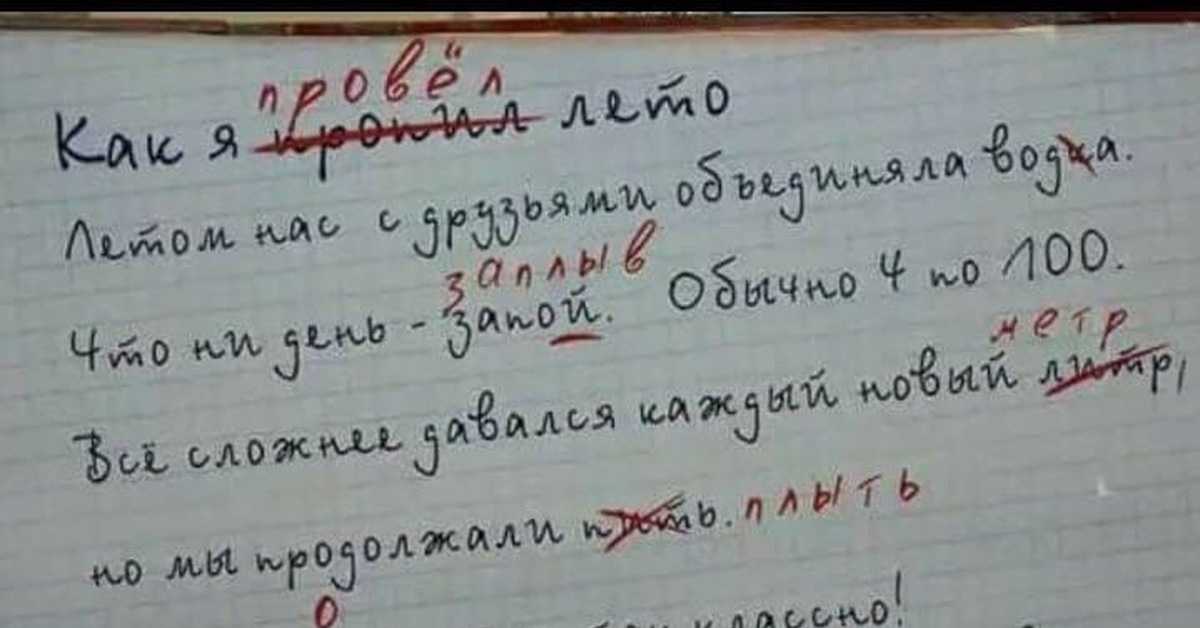 провёл
Как я пропил лето
Летом нас с друзьями объединяла водка.
заплыв
Что ни день - запой. Обычно 4 по 100.
метр
Всё сложнее давался каждый новый литр,
но мы продолжали пить. плыть
о
классно!